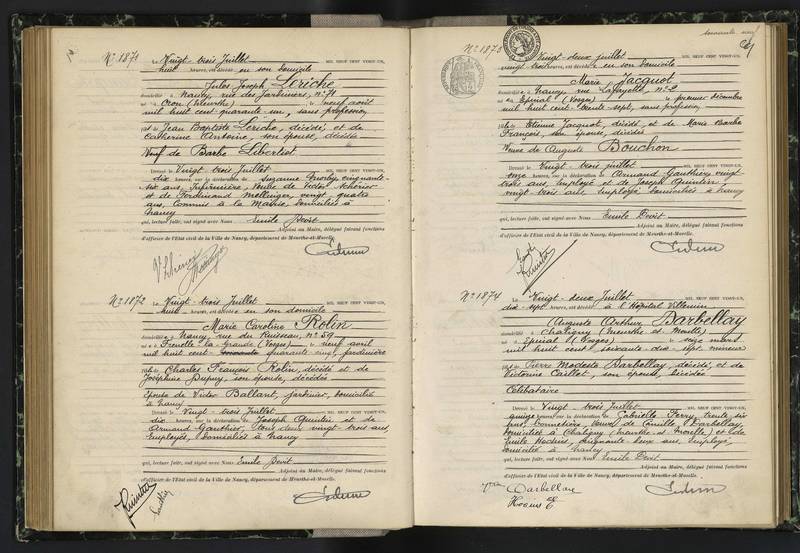 N° 1871
Le Vingt-trois Juillet MIL NEUF CENT VINGT-UN,
huit heures, est décédé en son domicile
Jules Joseph Leriche
domicilié à Nancy, rue des Jardiniers, n° 71
né à (Meurthe) le neuf août
mil huit cent quarante un, sans profession
fils de Jean Baptiste Leriche, décédé, et de
Catherine Antoine, son épouse, décédée
Veuf de Barbe Libertist
Dressé le Vingt-trois Juillet MIL NEUF CENT VINGT-UN,
dix heures, sur la déclaration de Suzanne cinquante
six ans, Infirmière, Veuve de Victor Scherier
et de Ferdinand Mellinger, vingt quatre
ans, Commis à la Mairie, domiciliés à
Nancy
qui, lecture faite, ont signé avec Nous Emile Devit
Adjoint au Maire, délégué faisant fonctions
d'officier de l'Etat civil de la Ville de Nancy, département de Meurthe-et-Moselle.
N° 1872
Le Vingt-trois Juillet MIL NEUF CENT VINGT-UN,
huit heures, est décédée en son domicile
Marie Caroline Rolin
domiciliée à Nancy, rue du Ruisseau, n° 59
née à Frenelle la Grande (Vosges) le neuf avril
mil huit cent soixante quarante cinq, jardinière
fille de Charles François Rolin, décédé et de
Joséphine Dupuy, son épouse, décédée
Epouse de Victor Ballant, jardinier, domicilié
à Nancy
Dressé le Vingt-trois Juillet MIL NEUF CENT VINGT-UN,
dix heures, sur la déclaration de Joseph Quintin et de
Armand Gauthier, tous deux vingt-trois ans,
Employés, domiciliés à Nancy
qui, lecture faite, ont signé avec Nous Emile Devit
Adjoint au Maire, délégué faisant fonctions
d'officier de l'Etat civil de la Ville de Nancy, département de Meurthe-et-Moselle.
Quintin
Gauthier
soixante neuf
69
N° 1873
Le Vingt-deux juillet MIL NEUF CENT VINGT-UN,
vingt trois heures, est décédée en son domicile
Marie Jacquot
domiciliée à Nancy, rue Lafayette, n° 2
née à Epinal (Vosges) le premier décembre
mil huit cent trente-sept, sans profession
fille de Etienne Jacquot, décédé, et de Marie Barbe
François, son épouse, décédée
Veuve de Auguste Bouchon
Dressé le Vingt-trois juillet MIL NEUF CENT VINGT-UN,
onze heures, sur la déclaration de Armand Gauthier, vingt
trois ans, employé et de Joseph Quintin,
vingt trois ans, employé, domiciliés à Nancy
qui, lecture faite, ont signé avec Nous Emile Devit
Adjoint au Maire, délégué faisant fonctions
d'officier de l'Etat civil de la Ville de Nancy, département de Meurthe-et-Moselle.
Quintin
N° 1874
Le Vingt-deux Juillet MIL NEUF CENT VINGT-UN,
dix sept heures, est décédé à l'Hôpital Villemin
Auguste Arthur Darbellay
domicilié à Chaligny (Meurthe et Moselle)
né à Epinal (Vosges) le seize mars
mil huit cent soixante dix sept, mineur
fils de Pierre Modeste Darbellay, décédé, et de
Victorine Caillot, son épouse, décédée
Célibataire
Dressé le Vingt-trois Juillet MIL NEUF CENT VINGT-UN,
quinze heures, sur la déclaration de Gabrielle Ferry, trente six
ans, bonnetière, veuve de Camille Darbellay,
domiciliée à Chaligny (Meurthe et Moselle) et de
Emile cinquante deux ans, employé,
domicilié à Nancy
qui, lecture faite, ont signé avec Nous Emile Devit
Adjoint au Maire, délégué faisant fonctions
d'officier de l'Etat civil de la Ville de Nancy, département de Meurthe-et-Moselle.
Darbellay